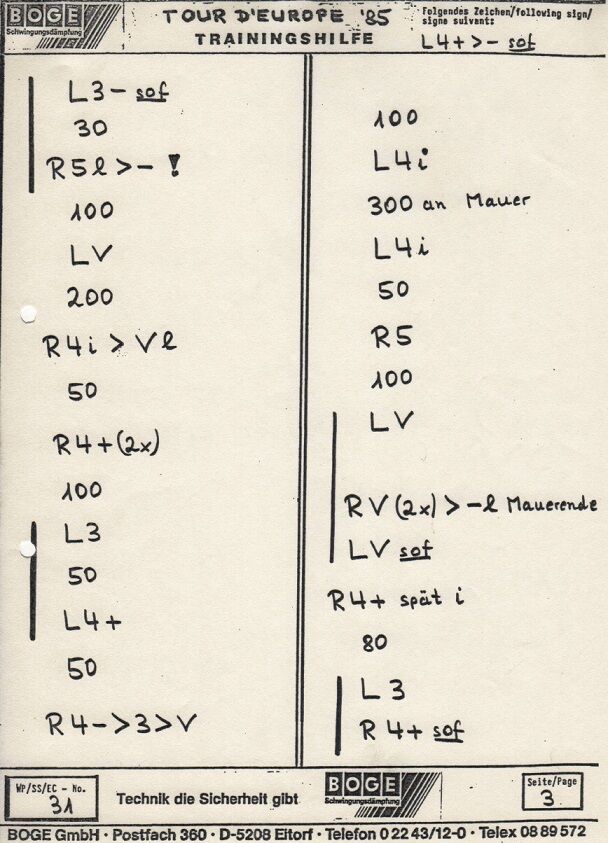 BOGE
Schwingungsdämpfung
TOUR D'EUROPE '85
TRAININGSHILFE
Folgendes Zeichen/following sign/
signe suivant:
L4+>- sof
L3- sof
30
R5l>- !
100
LV
200
R4i > Vl
50
R4+(2x)
100
L3
50
L4+
50
R4->3>V
100
L4i
300 an Mauer
L4i
50
R5
100
LV
RV(2x)>-l Mauerende
LV sof
R4+ spät i
80
L3
R4+ sof
WP/SS/EC - No.
31
Technik die Sicherheit gibt
BOGE
Schwingungsdämpfung
Seite/Page
3
BOGE GmbH · Postfach 360 · D-5208 Eitorf · Telefon 0 22 43/12-0 · Telex 08 89 572